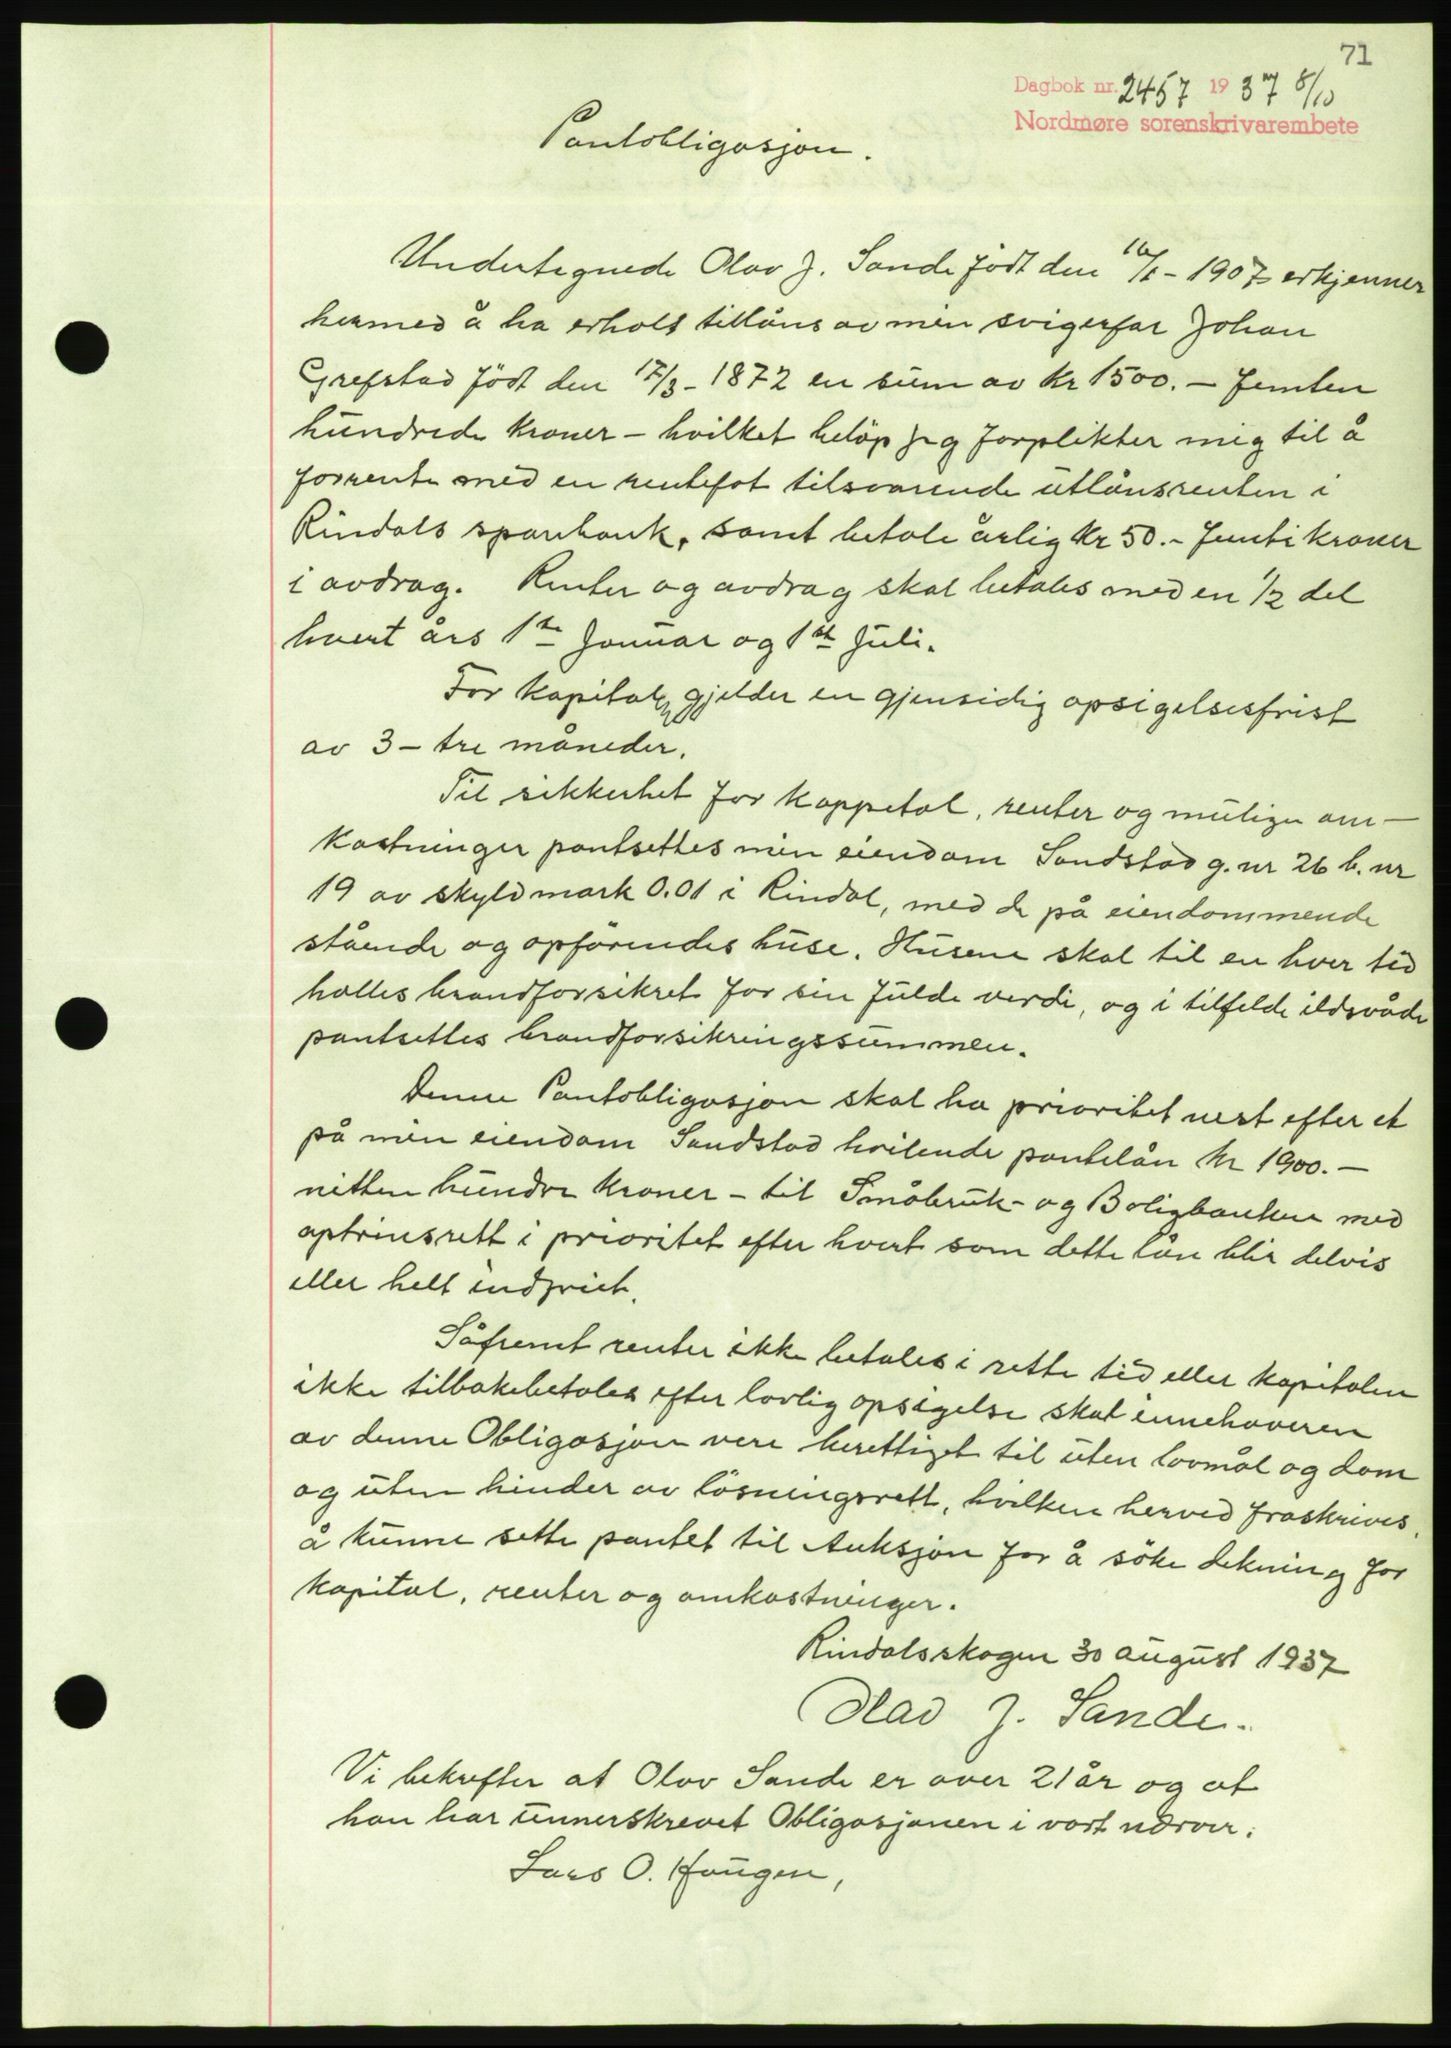 71
Dagbok nr. 2457 1937 8/10
Nordmøre sorenskrivarembete
Pantobligasjon.
Undertegnede Olav J. Sande født den 16/ - 1907 erkjenner
hermed å ha erholt tillåns av min svigerfar Johan
Grefstad født den 17/3 - 1872 en sum av kr 1500. – femten
hundrede kroner – hvilket beløp jeg forplikter mig til å
forrente med en rentefot tilsvarende utlånsrenten i
Rindals sparebank, samt betale årlig kr 50.- femti kroner
i avdrag. Renter og avdrag skal betales med en 1/2 del
hvert års 1ste Januar og 1ste Juli.
For kapitalen gjelder en gjensidig opsigelsesfrist
av 3 – tre måneder.
Til sikkerhet for kappetal, renter og mulige om–
kostninger pantsettes min eiendom Sandstad g. nr 26 b. nr
19 av skyldmark 0.01 i Rindal, med de på eiendommende
stående og opførendes huse. Husene skal til en hver tid
holles brandforsikret for sin fulde verdi, og i tilfelde ildsvåde
pantsettes brandforsikringssummen.
Denne Pantobligasjon skal ha prioritet nest efter et
på min eiendom Sandstad hvilende pantelån kr 1900. –
nitten hundre kroner – til Småbruk- og Boligbanken med
optrinsrett i prioritet efter hvert som dette lån blir delvis
eller helt indfriet.
Såfremt renter ikke betales i rette tid eller kapitalen
ikke tilbakebetales efter lovlig opsigelse skal innehaveren
av denne Obligasjon vere berettiget til uten lovmål og dom
og uten hinder av løsningsrett, hvilken herved fraskrives,
å kunne sette pantet til Auksjon for å søke dekning for
kapital, renter og omkostninger.
Rindalsskogen 30 august 1937
Olav J. Sande.
Vi bekrefter at Olav Sande er over 21 år og at
han har unnerskrevet Obligasjonen i vort nærver.
Lars O. Haugen,